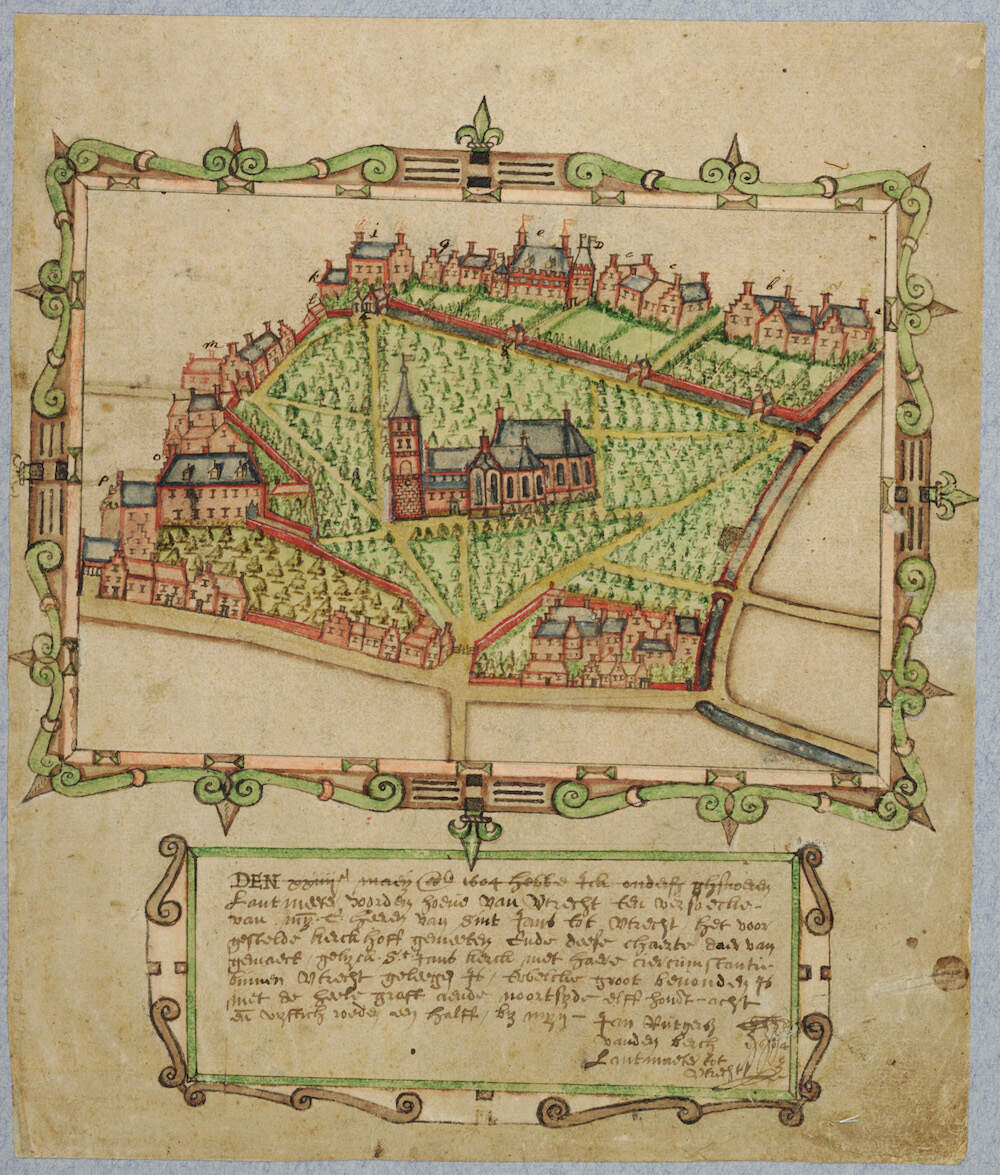 i
g
e
D
c
c
b
a
k
l
m
o
p
DEN xxiiii maey 1604 hebbe Ick onderß ghesworen
Lantmeter vorden hoeve van Utrecht ten versoecke
van myn E: heeren van sint Jans tot Utrecht het voor
gestelde kerckhoff gemeeten Ende deese chaerte daer van
gemaeckt, gelyck St Jans kerck met haere circumstantie
binnen Utrecht geleegen is, twelcke groot bevonden is
met de heele graft aende noortsyde elff hondt acht
en vyftich roeden een halff, by myn Jan Rutgersz
vanden berch
Lantmeter tot
Utrecht